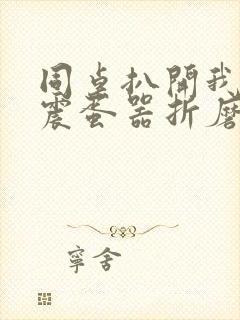 同桌扒開我
震蛋器折磨
寧舍